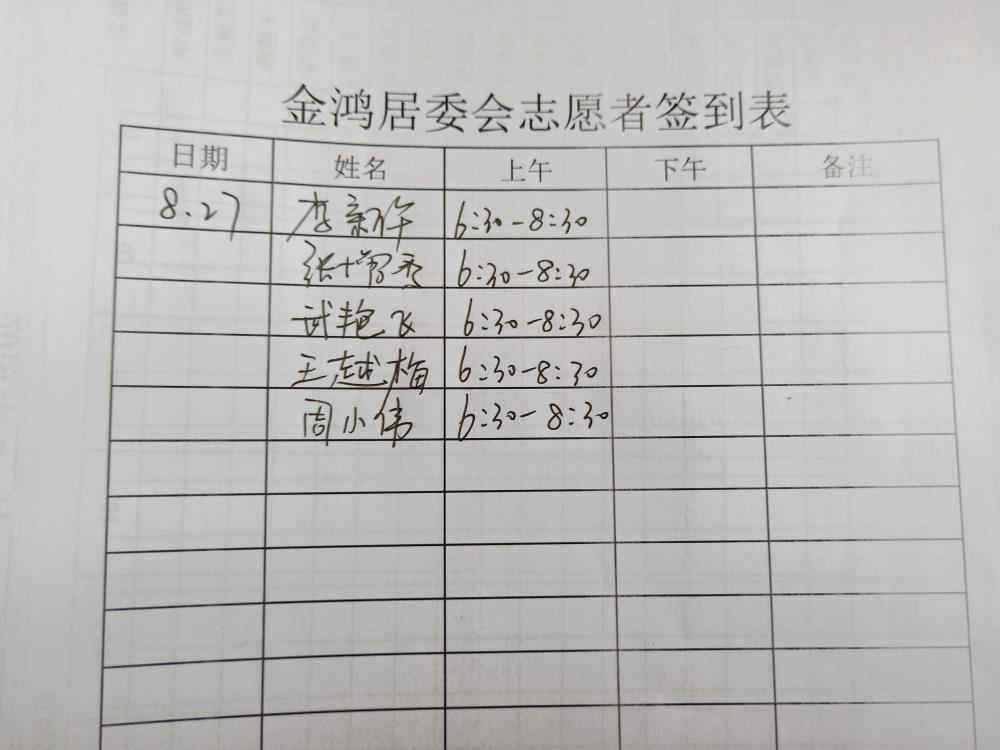 金鸿居委会志愿者签到表
日期 姓名 上午 下午 备注
8.27 李新华 6:30-8:30
张增秀 6:30-8:30
武艳飞 6:30-8:30
王越梅 6:30-8:30
周小伟 6:30-8:30